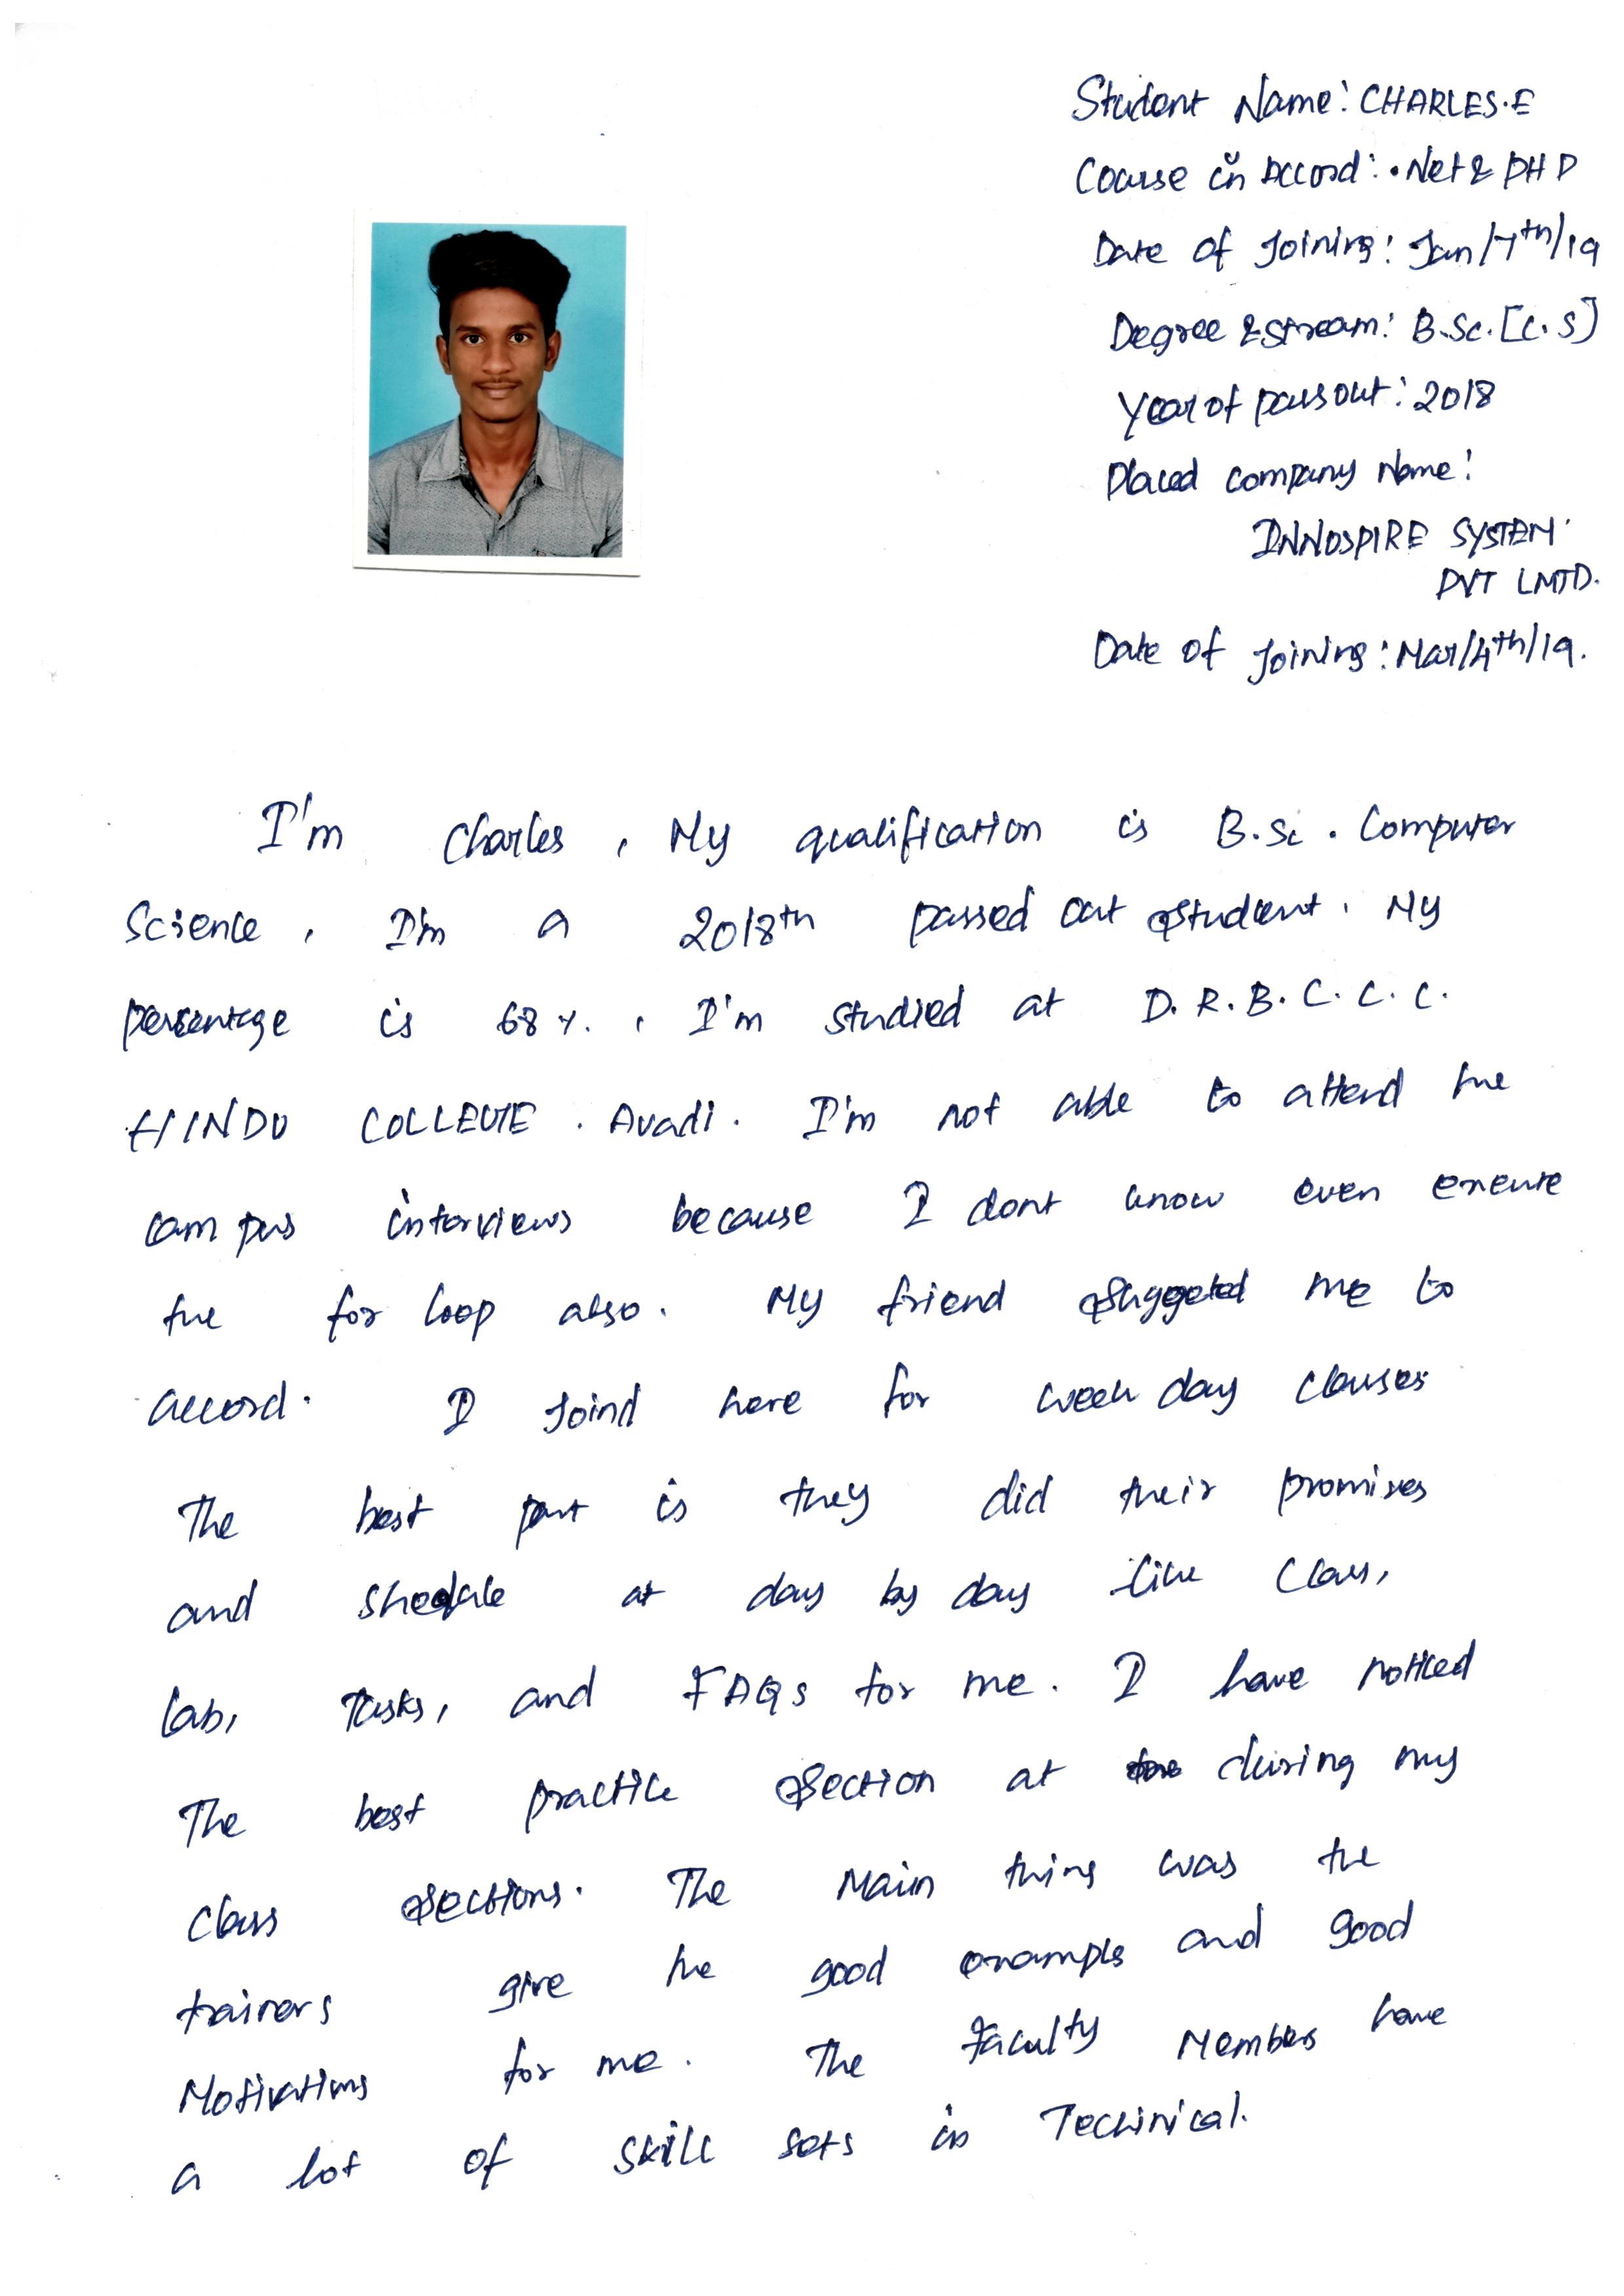 Student Name: CHARLES.E
Course in Accord: .Net & PHP
Date of Joining: Jan/7th/19
Degree & stream: B.Sc.[C.S]
Year of pass out: 2018
Placed company Name:
INNOSPIRE SYSTEM
PVT LMTD.
Date of Joining: Mar/4th/19.
I'm Charles, My qualification is B.Sc. Computer
Science, I'm a 2018th passed out student. My
persentage is 68%. , I'm studied at D.R.B.C.C.C.
HINDU COLLEGE. Avadi. I'm not able to attend the
campus interviews because I dont know even execute
the for loop also. My friend suggeted me to
accord. I Joind here for week day classes
The best part is they did their promises
and shedule at day by day like Class,
lab, Tasks, and FAQs for me. I have noticed
The best practice section at during my
class sections. The Main thing was the
trainers give the good examples and good
Motivations for me. The faculty Members have
a lot of skill sets in Techinical.